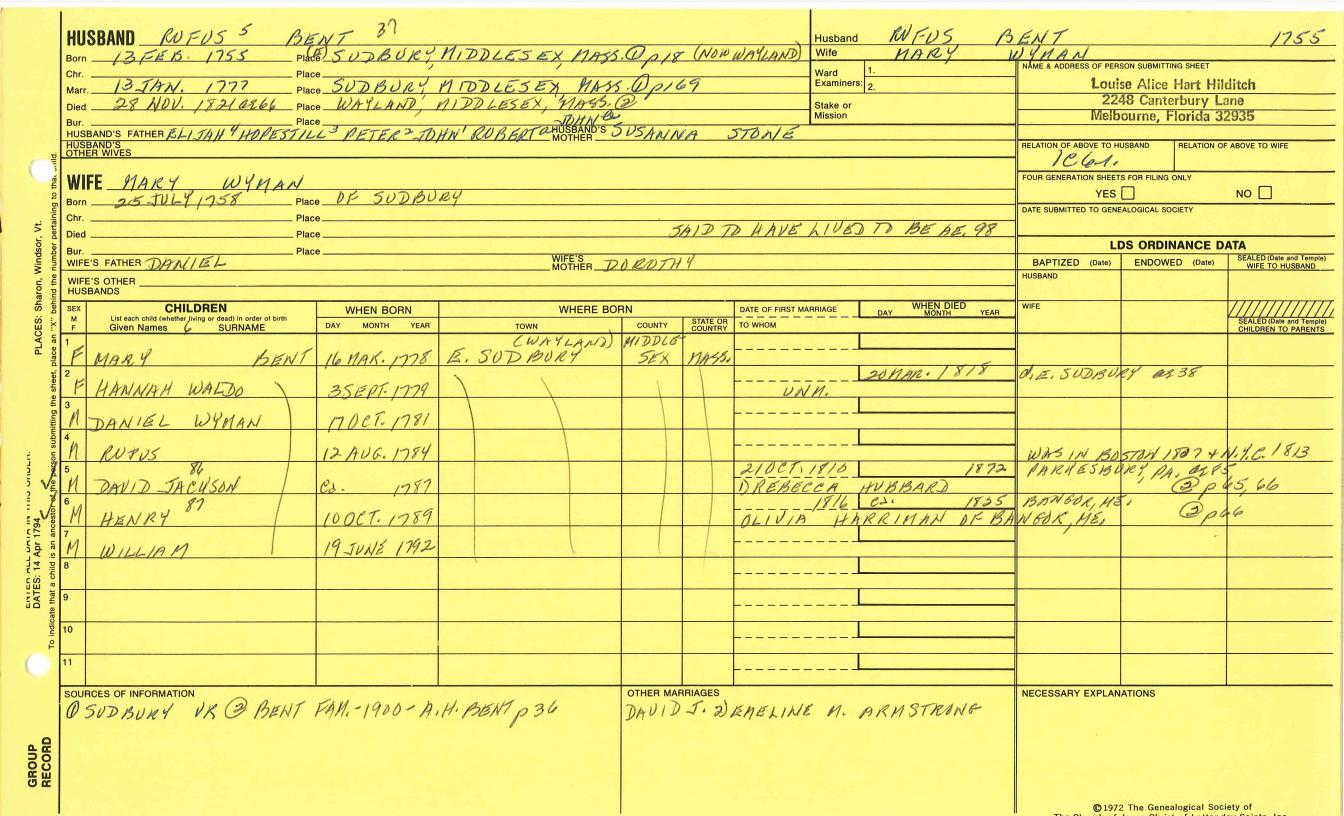 HUSBAND RUFUS 5 BENT 37
Born 13 FEB. 1755 Place (E) SUDBURY, MIDDLESEX, MASS. ① p18 (NOW WAYLAND)
Chr. Place
Marr. 13 JAN. 1777 Place SUDBURY MIDDLESEX, MASS. ① p169
Died 28 NOV. 1821 ae 66 Place WAYLAND, MIDDLESEX, MASS. ②
Bur. Place
HUSBAND'S FATHER ELIJAH 4 HOPESTILL 3 PETER 2 JOHN 1 ROBERT JOHN HUSBAND'S MOTHER SUSANNA STONE
HUSBAND'S OTHER WIVES
Husband RUFUS BENT 1755
Wife MARY WYMAN
Ward Examiners: 1.
2.
Stake or Mission
NAME & ADDRESS OF PERSON SUBMITTING SHEET
Louise Alice Hart Hilditch
2248 Canterbury Lane
Melbourne, Florida 32935
RELATION OF ABOVE TO HUSBAND RELATION OF ABOVE TO WIFE
1C6r.
FOUR GENERATION SHEETS FOR FILING ONLY
YES NO
DATE SUBMITTED TO GENEALOGICAL SOCIETY
WIFE MARY WYMAN
Born 25 JULY 1758 Place OF SUDBURY
Chr. Place
Died Place SAID TO HAVE LIVED TO BE AE. 98
Bur. Place
WIFE'S FATHER DANIEL WIFE'S MOTHER DOROTHY
WIFE'S OTHER HUSBANDS
LDS ORDINANCE DATA
BAPTIZED (Date) ENDOWED (Date) SEALED (Date and Temple) WIFE TO HUSBAND
HUSBAND
WIFE
SEALED (Date and Temple) CHILDREN TO PARENTS
SEX M F CHILDREN List each child (whether living or dead) in order of birth Given Names 6 SURNAME
WHEN BORN DAY MONTH YEAR
WHERE BORN TOWN COUNTY STATE OR COUNTRY
DATE OF FIRST MARRIAGE TO WHOM
WHEN DIED DAY MONTH YEAR
1 F MARY BENT 16 MAR. 1778 E. SUDBURY (WAYLAND) MIDDLESEX MASS.
2 F HANNAH WALDO 3 SEPT. 1779 UNM. 20 MAR. 1818 d. E. SUDBURY ae 38
3 M DANIEL WYMAN 17 OCT. 1781
4 M RUFUS 12 AUG. 1784 WAS IN BOSTON 1807 & N.Y.C. 1813
5 M DAVID JACKSON 86 ca. 1787 21 OCT. 1810 1872 PARKESBURY, PA. ae 85
① REBECCA HUBBARD ② p 65, 66
6 M HENRY 87 10 OCT. 1789 1816 ca. 1835 BANGOR, ME.
OLIVIA HARRIMAN OF BANGOR, ME. ② p66
7 M WILLIAM 19 JUNE 1792
8
9
10
11
SOURCES OF INFORMATION
① SUDBURY VR ② BENT FAM.-1900-A.H. BENT p 36
OTHER MARRIAGES
DAVID J. 2) EMELINE M. ARMSTRONG
NECESSARY EXPLANATIONS
©1972 The Genealogical Society of
PLACES: Sharon, Windsor, Vt.
DATES: 14 Apr 1794
To indicate that a child is an ancestor of the person submitting the sheet, place an "X" behind the number pertaining to that child.
GROUP RECORD